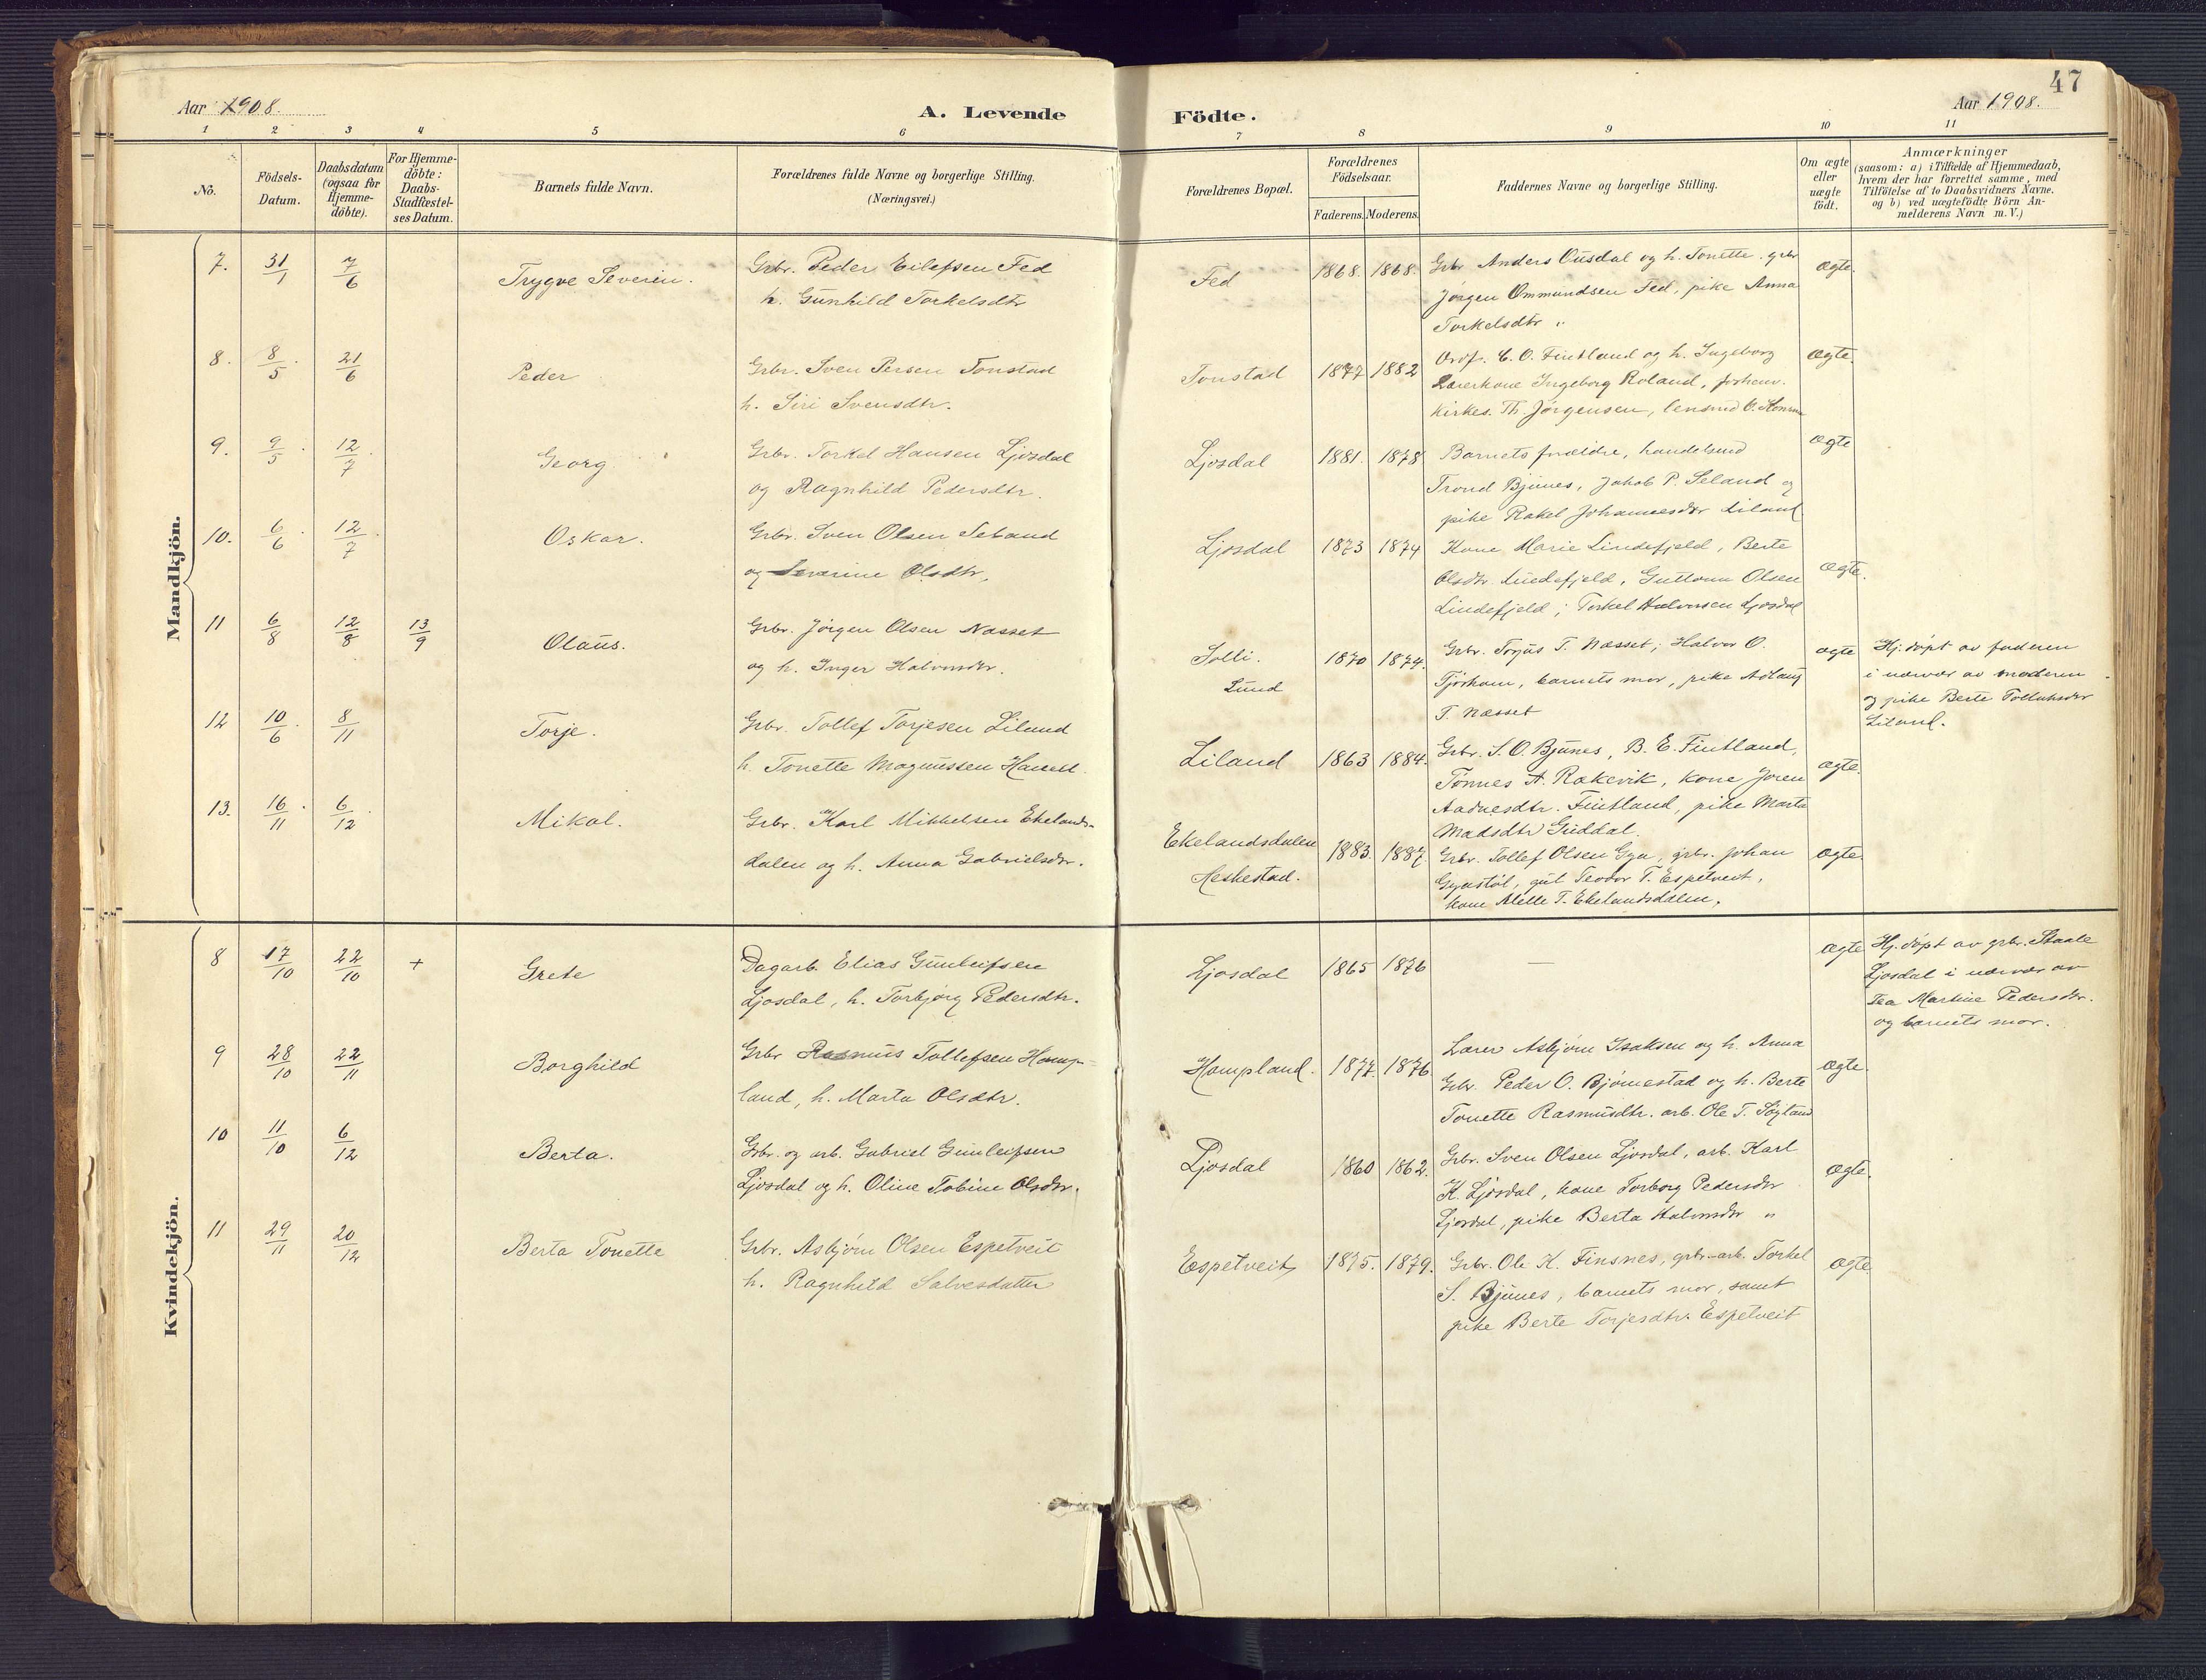 47
Aar 1908.
A. Levende Födte.
Aar 1908.
1 2 3 4 5 6 7 8 9 10 11
No.
Födsels-Datum.
Daabsdatum (ogsaa for Hjemme-döbte).
For Hjemme-döbte: Daabs-Stadfæstel-ses Datum.
Barnets fulde Navn.
Forældrenes fulde Navne og borgerlige Stilling.
(Næringsvei.)
Forældrenes Bopæl.
Forældrenes Födselsaar.
Faderens. Moderens.
Faddernes Navne og borgerlige Stilling.
Om ægte eller uægte födt.
Anmærkninger
(saasom: a) i Tilfælde af Hjemmedaab,
hvem der har forrettet samme, med
Tilföielse af to Daabsvidners Navne.
og b) ved uægtefödte Börn An-
melderens Navn m. V.)
Mandkjön.
7. 31/1 7/6 Trygve Severin.
Grbr. Peder Eilefsen Fed
h. Gunhild Torkelsdtr
Fed 1868. 1868.
Grbr Anders Ousdal og h. Tonette. grbr
Jørgen Ommundsen Fed, pike Anna
Torkelsdtr "
ægte.
8. 8/5 21/6 Peder
Grbr. Sven Persen Tonstad
h. Siri Svensdtr.
Tonstad 1877 1882
Ordf. O. Fintland og h. Ingeborg
Lærerkone Ingeborg Roland, forhenv.
kirkes. Th. Jørgensen, lensmd O. Homme
ægte.
9. 9/5 12/7 Georg
Grbr. Torkel Hansen Ljosdal
og Ragnhild Pedersdtr.
Ljosdal 1881. 1878
Barnets forældre, handelsmd
Trond Bjunes, Jakob P. Seland og
pike Rakel Johannesdtr Liland
ægte
10. 6/6 12/7 Oskar.
Grbr. Sven Olsen
og Severine Olsdtr,
Ljosdal 1873 1874
Kone Marie Lindefjeld, Berte
Olsdtr. Lindefjeld, Guttorm Olsen
Lindefjeld; Torkel Halvorsen Ljosdal
ægte.
11 6/8 12/8 13/9 Olaus.
Grbr. Jørgen Olsen Næsset
og h. Inger Halvorsdtr.
Solli.
Lund
1870 1874.
Grbr. Torjus T. Næsset; Halvor O.
Tjørhom, barnets mor, pike
T. Næsset
ægte
Hj. døpt av faderen
i nærvær av moderen
og pike Berte Tollaksdtr
Liland.
12 10/6 8/11 Torje.
Grbr. Tollef Torjesen Liland
h. Tonette Magnussen
Liland 1863 1884.
Grbr. S. O. Bjunes, B. E. Fintland,
Tønnes A. Rakevik, kone Joren
Aadnesdtr. Fintland, pike Marta
Madsdtr Guddal.
ægte.
13. 16/11 6/12 Mikal.
Grbr. Karl Mikkelsen Ekelands-
dalen og h. Anna Gabrielsdtr.
Ekelandsdalen
Heskestad.
1883. 1887.
Grbr. Tollef Olsen Gya, grbr. Johan
Gyastøl, gut Teodor T. Espetveit,
kone Malle T. Ekelandsdalen.
ægte.
Kvindekjön.
8 17/10 22/10 + Grete
Dagarb. Elias Gunleifsen
Ljosdal, h. Torbjørg Pedersdtr.
Ljosdal 1865 1876 —
ægte
Hj. døpt av grbr. Staale
Ljosdal i nærvær av
Tea Martine Pedersdtr.
og barnets mor.
9 28/10 22/11 Borghild
Grbr Rasmus Tollefsen Homp-
land, h. Marta Olsdtr.
Hompland. 1877. 1876.
Lærer Asbjørn Isaksen og h. Anna
Grbr. Peder O. Bjørnestad og h. Berte
Tonette Rasmusdtr. arb. Ole T.
ægte.
10 11/10 6/12 Berta.
Grbr. og arb. Gabriel Gunleifsen
Ljosdal og h. Oline Tobine Olsdtr.
Ljosdal 1860 1862.
Grbr. Sven Olsen Ljosdal, arb. Karl
K. Ljosdal, kone Torborg Pedersdtr
Ljosdal, pike Berta Halvorsdtr "
ægte.
11 29/11 20/12 Berta Tonette
Grbr. Asbjørn Olsen Espetveit
h. Ragnhild Salvesdatter
Espetveit 1875. 1879.
Grbr. Ole K. Finsnes, grbr. arb. Torkel
S. Bjunes, barnets mor, samt
pike Berte Torjesdtr. Espetveit
ægte.